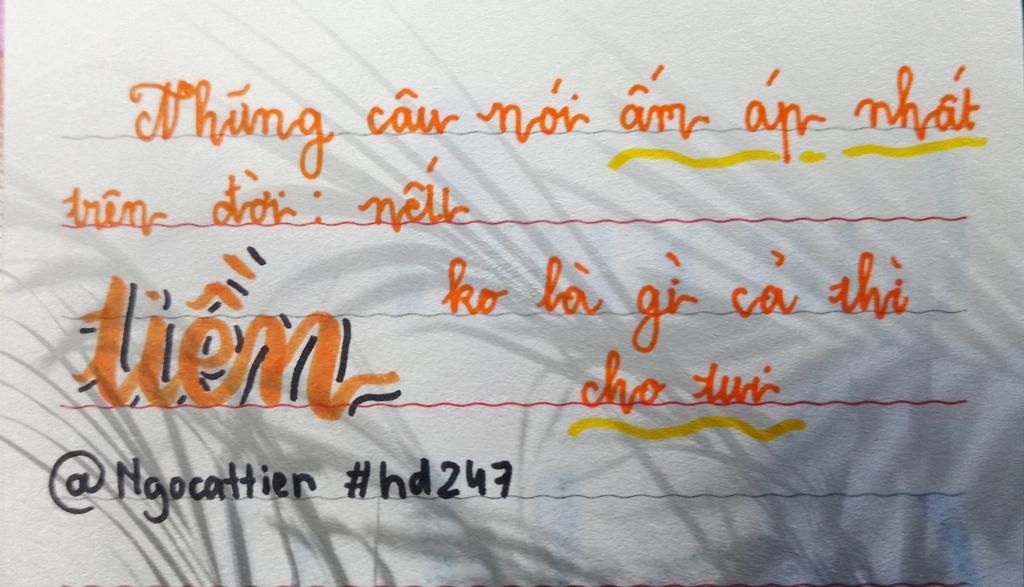 Những câu nói ấm áp nhất
trên đời: nếu
tiền ko là gì cả thì
cho tui
@Ngocattien #hd247